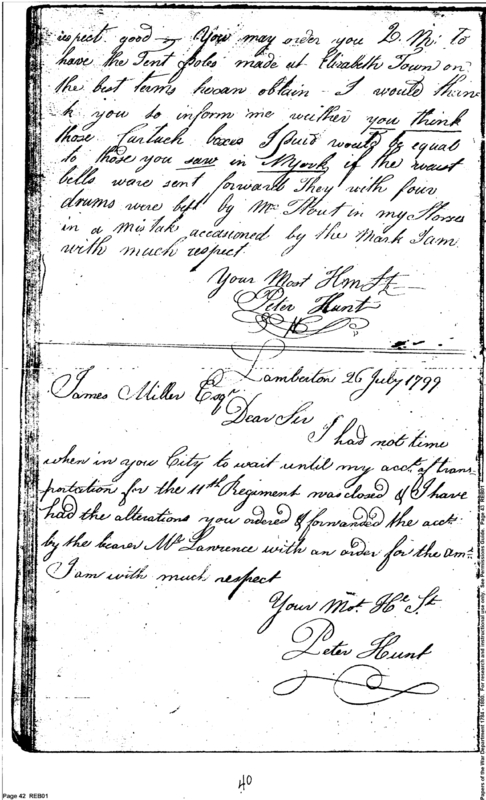 respect good — You may order you Q. Mr. to
have the Tent poles made at Elizabeth Town on
the best terms he can obtain — I would than
k you to inform me wether you think
those Cartuch boxes I said would be equal
to those you saw in NYork, if the waist
belts were sent forward they with four
drums were left by Mr Stout in my Stores
in a mistak accasioned by the Mark I am
with much respect
Your Most Hm St
Peter Hunt
Lamberton 26 July 1799
James Miller Esqr
Dear Sir
I had not time
when in you City to wait until my acct. of trans-
portation for the 11th Regiment was closed & I have
had the alterations you ordered & forwarded the acct
by the bearer Mr Lawrence with an order for the amt
I am with much respect
Your Mot. He St.
Peter Hunt
40
Page 42 REB01
Papers of the War Department 1784 - 1800. For research and instructional use only.